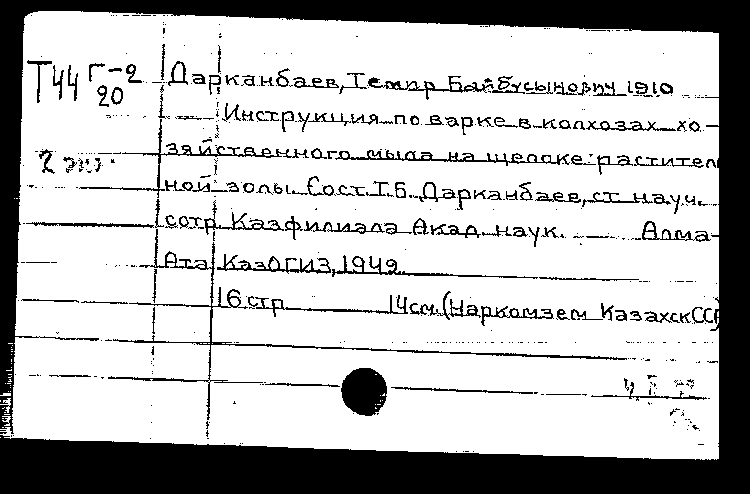 Т44 Г-2
20
Дарканбаев, Темир Байбусынович 1910
Инструкция по варке в колхозах хо-
2 экз.
зяйственного мыла на щелоке раститель
ной золы. Сост. Т.Б. Дарканбаев, ст. науч.
сотр. Казфилиала Акад. наук. Алма-
Ата, КазОГИЗ, 1942.
16 стр. 14 см. (Наркомзем Казахск ССР)